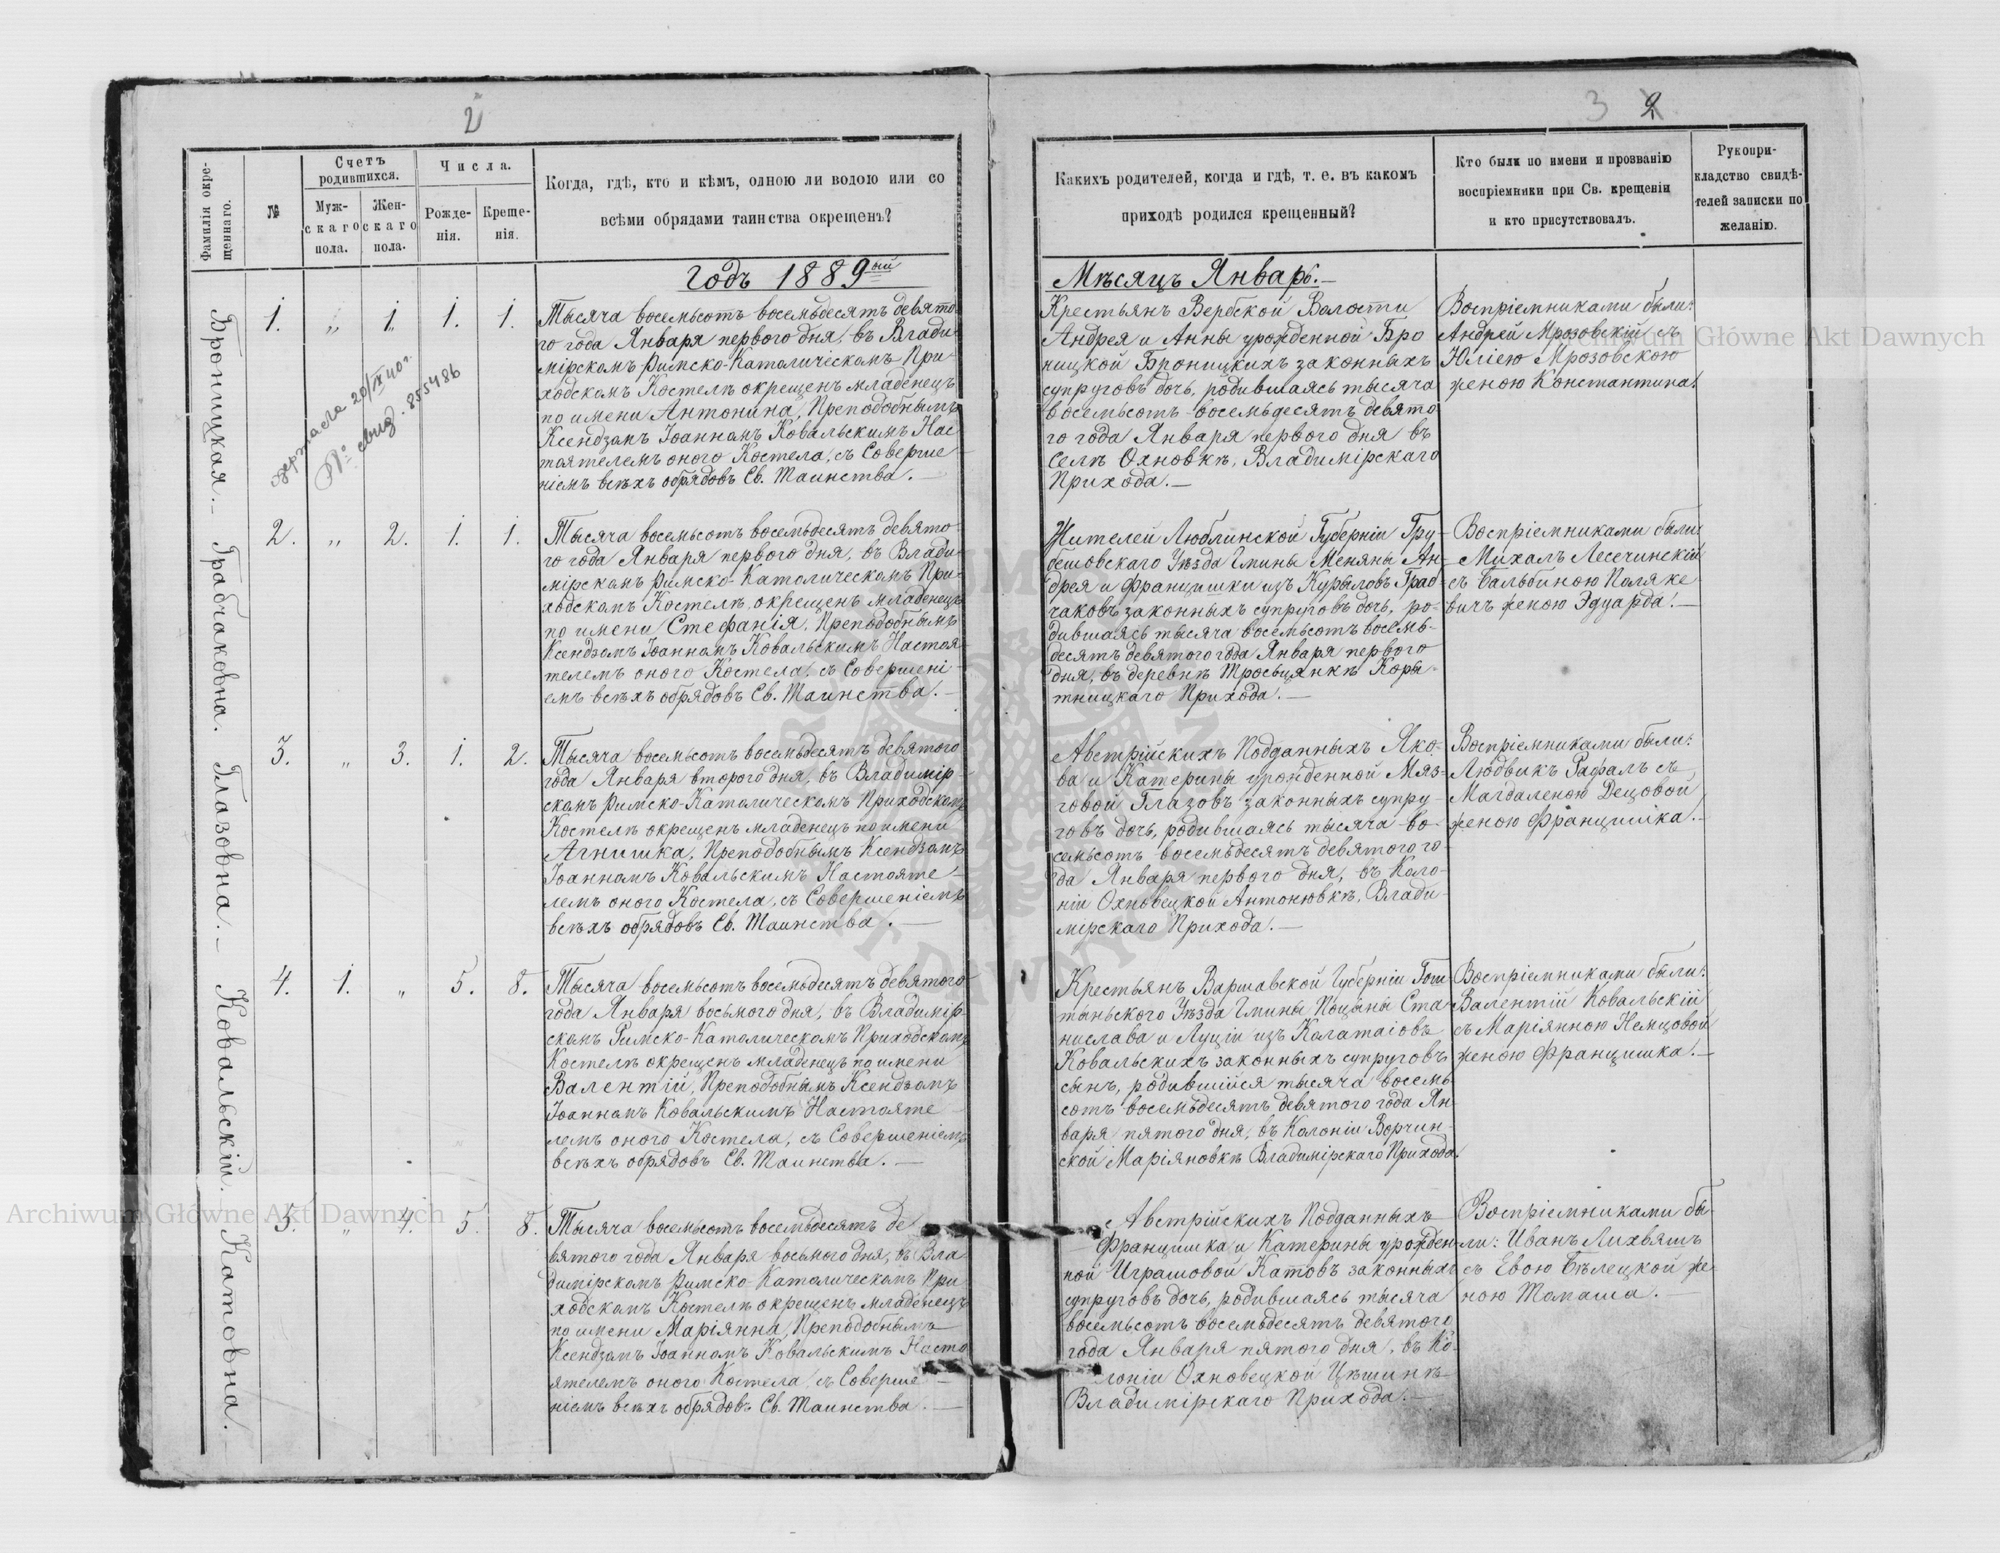 2
Фамилія окрещеннаго.
№
Счетъ родившихся.
Мужскаго пола.
Женскаго пола.
Числа.
Рожденія.
Крещенія.
Когда, гдѣ, кто и кѣмъ, одною ли водою или со
всѣми обрядами таинства окрещенъ?
Годъ 1889ый
Броницкая. —
1. „ 1. 1. 1.
20/IX 40 г.
№ свид. 855486
Тысяча восемьсотъ восемьдесятъ девято
го года Января первого дня, въ Влади
мірскомъ Римско-Католическомъ При-
ходскомъ Костелѣ окрещенъ младенецъ
по имени Антонина, Преподобнымъ
Ксендзомъ Іоанномъ Ковальскимъ Нас
тоятелемъ оного Костела, съ Соверше
ніемъ всѣхъ обрядовъ Св. Таинства. —
Грабчаковна.
2. „ 2. 1. 1.
Тысяча восемьсотъ восемьдесятъ девято-
го года Января первого дня, въ Влади-
мірскомъ Римско-Католическомъ При-
ходскомъ Костелѣ окрещенъ младенецъ
по имени Стефанія, Преподобнымъ
Ксендзомъ Іоанномъ Ковальскимъ Настоя
телемъ оного Костела, съ Совершені-
емъ всѣхъ обрядовъ Св. Таинства. —
Глазовна. —
3. „ 3. 1. 2.
Тысяча восемьсотъ восемьдесятъ девятого
года Января второго дня, въ Владимір
скомъ Римско-Католическомъ Приходскомъ
Костелѣ окрещенъ младенецъ по имени
Агнишка, Преподобнымъ Ксендзомъ
Іоанномъ Ковальскимъ Настояте-
лемъ оного Костела, съ Совершеніемъ
всѣхъ обрядовъ Св. Таинства. —
Ковальскій.
4. 1. „ 5. 8.
Тысяча восемьсотъ восемьдесятъ девятого
года Января восьмого дня, въ Владимір-
скомъ Римско-Католическомъ Приходскомъ
Костелѣ окрещенъ младенецъ по имени
Валентій, Преподобнымъ Ксендзомъ
Іоанномъ Ковальскимъ Настояте-
лемъ оного Костела, съ Совершеніемъ
всѣхъ обрядовъ Св. Таинства. —
Катовна. —
5. „ 4. 5. 8.
Тысяча восемьсотъ восемьдесятъ де
вятого года Января восьмого дня, въ Вла
димірскомъ Римско-Католическомъ При
ходскомъ Костелѣ окрещенъ младенецъ
по имени Маріянна, Преподобнымъ
Ксендзомъ Іоанномъ Ковальскимъ Насто
ятелемъ оного Костела, съ Соверше-
ніемъ всѣхъ обрядовъ Св. Таинства. —
3 2
Какихъ родителей, когда и гдѣ, т. е. въ какомъ
приходѣ родился крещенный?
Кто были по имени и прозванію
воспріемники при Св. крещеніи
и кто присутствовалъ.
Рукопри-
кладство свидѣ-
телей записки по
желанію.
Мѣсяцъ Январь. —
Крестьянъ Вербской Волости
Андрея и Анны урожденной Бро
ницкой Броницкихъ законныхъ
супруговъ дочь, родившаясь тысяча
восемьсотъ восемьдесятъ девято
го года Января первого дня въ
Селѣ Охновкѣ, Владимірскаго
Прихода. —
Воспріемниками были:
Андрей Мрозовскій съ
Юліею Мрозовскою
женою Константина.
Жителей Люблинской Губерніи Гру-
бешовскаго Уѣзда Гмины Меняны Ан-
дрея и Францишки изъ Курыловъ Граб-
чаковъ законныхъ супруговъ дочь, ро-
дившаясь тысяча восемьсотъ восемь-
десятъ девятого года Января первого
дня, въ деревнѣ Тросьцянкѣ Коры-
тницкаго Прихода. —
Воспріемниками были:
Михалъ Лесечинскій
съ Бальбиною Поляке
вичъ женою Эдуарда. —
Австрійскихъ Подданныхъ Яко-
ва и Катерины урожденной Мяз-
говой Глазовъ законныхъ супру-
говъ дочь, родившаясь тысяча во-
семьсотъ восемьдесятъ девятого го-
да Января первого дня, въ Коло-
ніи Охновецкой Антоновкѣ, Влади-
мірскаго Прихода. —
Воспріемниками были:
Людвикъ Рафалъ съ
Магдаленою Децовой
женою Францишка. —
Крестьянъ Варшавской Губерніи Гос
тыньского Уѣзда Гмины Поцяны Ста
нислава и Луціи изъ Колатаіовъ
Ковальскихъ законныхъ супруговъ
сынъ, родившійся тысяча восемь-
сотъ восемьдесятъ девятого года Ян-
варя пятого дня, въ Колоніи Ворчин-
ской Маріяновкѣ Владимірскаго Прихода.
Воспріемниками были:
Валентій Ковальскій
съ Маріянною Немцовой
женою Францишка. —
Австрійскихъ Подданныхъ
Францишка и Катерины урожден-
ной Играшовой Катовъ законныхъ
супруговъ дочь, родившаясь тысяча
восемьсотъ восемьдесятъ девятого
года Января пятого дня, въ Ко-
лоніи Охновецкой Цѣшинѣ
Владимірскаго Прихода. —
Воспріемниками бы
ли: Иванъ Лихвяшъ
съ Евою Бѣлецкой же
ною Томаша. —
Archiwum Główne Akt Dawnych
Archiwum Główne Akt Dawnych